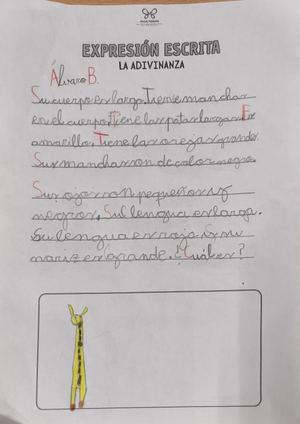 EXPRESIÓN ESCRITA
LA ADIVINANZA
Álvaro B.
Su cuerpo es larga. Tiene manchas
en el cuerpo. Tiene las patas largas. Es
amarilla. Tiene las orejas grandes.
Sus manchas son de color negro.
Sus ojos son pequeños y
negros. Su lengua es larga.
Su lengua es roja. Su
nariz es grande. ¿Cuál es?